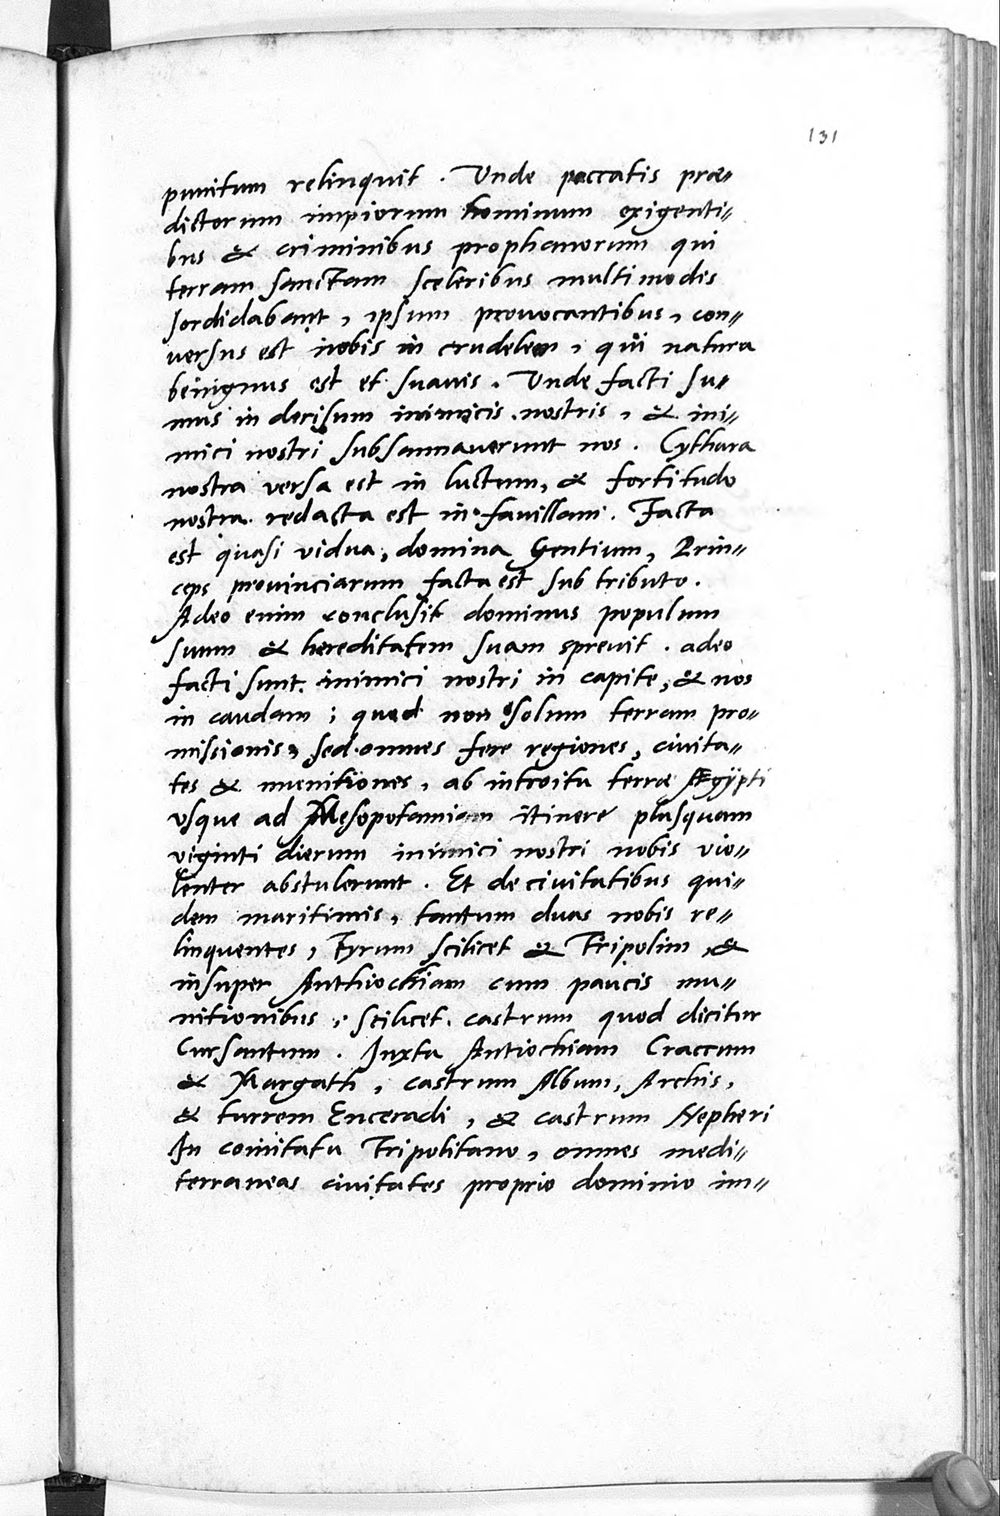 131
punitum relinquit . Unde peccatis præ=
dictorum impiorum hominum exigenti=
bus & criminibus prophanorum qui
terram sanctam sceleribus multimodis
sordidabant, ipsum provocantibus, con=
versus est nobis in crudelem, qui natura
benignus est et suavis. Unde facti su=
mus in derisum inimicis nostris, & ini=
mici nostri subsannaverunt nos. Cythara
nostra versa est in luctum, & fortitudo
nostra redacta est in favillam. Facta
est quasi vidua, domina Gentium, Prin=
ceps provinciarum facta est sub tributo.
Adeo enim conclusit dominus populum
suum & hereditatem suam sprevit . adeo
facti sunt inimici nostri in capite, & nos
in caudam ; quod non solum terram pro=
missionis, sed omnes fere regiones, civita=
tes & munitiones, ab introitu terræ Ægÿpti
usque ad Mesopotamiam itinere plusquam
viginti dierum inimici nostri nobis vio=
lenter abstulerunt . Et de civitatibus qui=
dem maritimis, tantum duas nobis re=
linquentes, Tyrum scilicet & Tripolim, &
insuper Anthiochiam cum paucis mu=
nitionibus, scilicet. castrum quod dicitur
Cursantum . Juxta Antiochiam Craccum
& Margath, castrum Album, Archis,
& turrem Enceradi, & castrum Nepheri
In comitatu Tripolitano, omnes medi=
terraneas civitates proprio dominio im=